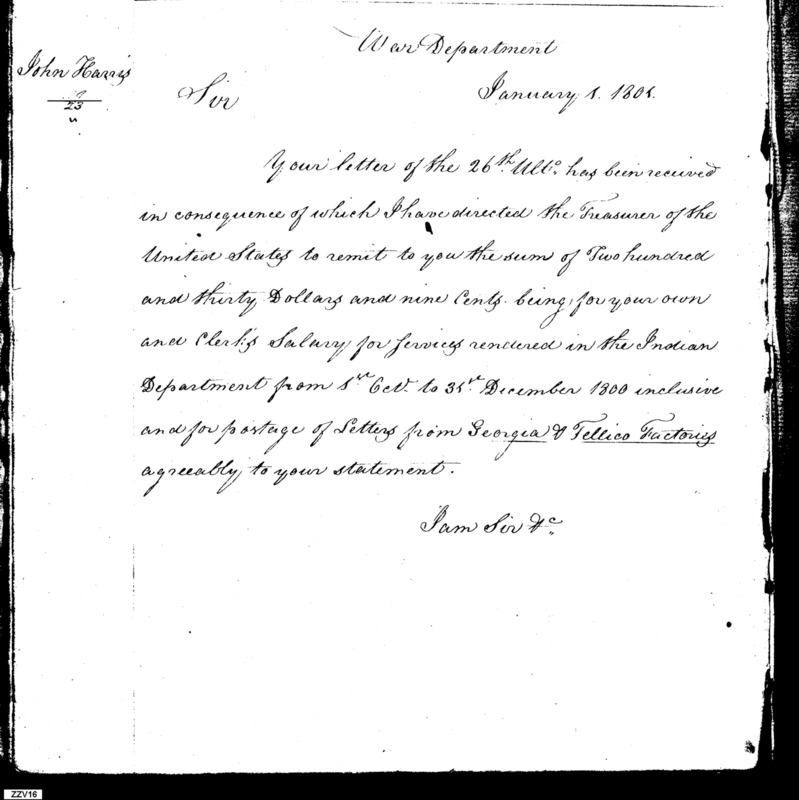 War Department
John Harris
January 1. 1801.
23
Sir
Your letter of the 26th. Ulto. has been received
in consequence of which I have directed the Treasurer of the
United States to remit to you the sum of Two hundred
and thirty Dollars and nine Cents. being, for your own
and Clerk's Salary, for services rendered in the Indian
Department from 1st Octr. to 31st. December 1800 inclusive
and for postage of Letters from Georgia & Tellico Factories
agreeably, to your statement.
I am Sir &c
ZZV16